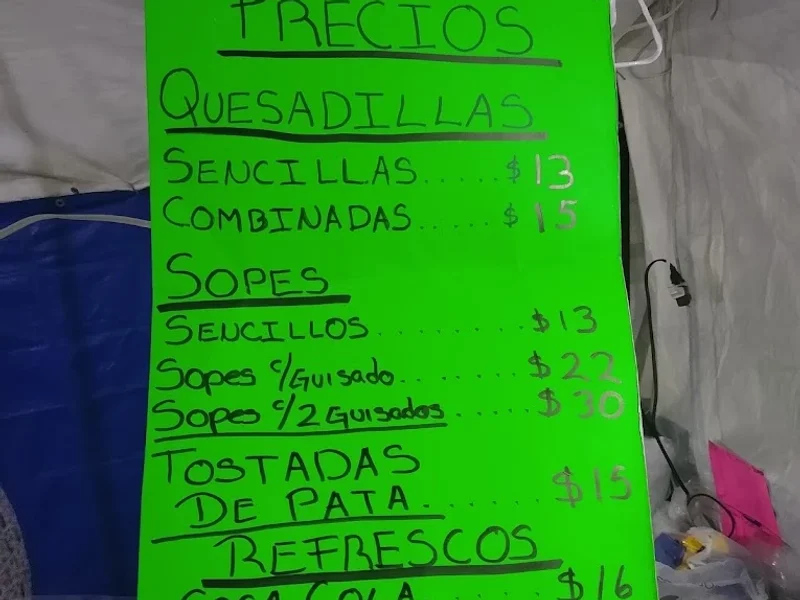 PRECIOS
QUESADILLAS
SENCILLAS.....$13
COMBINADAS......$15
SOPES
SENCILLOS........$13
Sopes c/Guisado.......$22
Sopes c/2 Guisados.....$30
TOSTADAS
DE PATA.......$15
REFRESCOS
COCA COLA.......$16